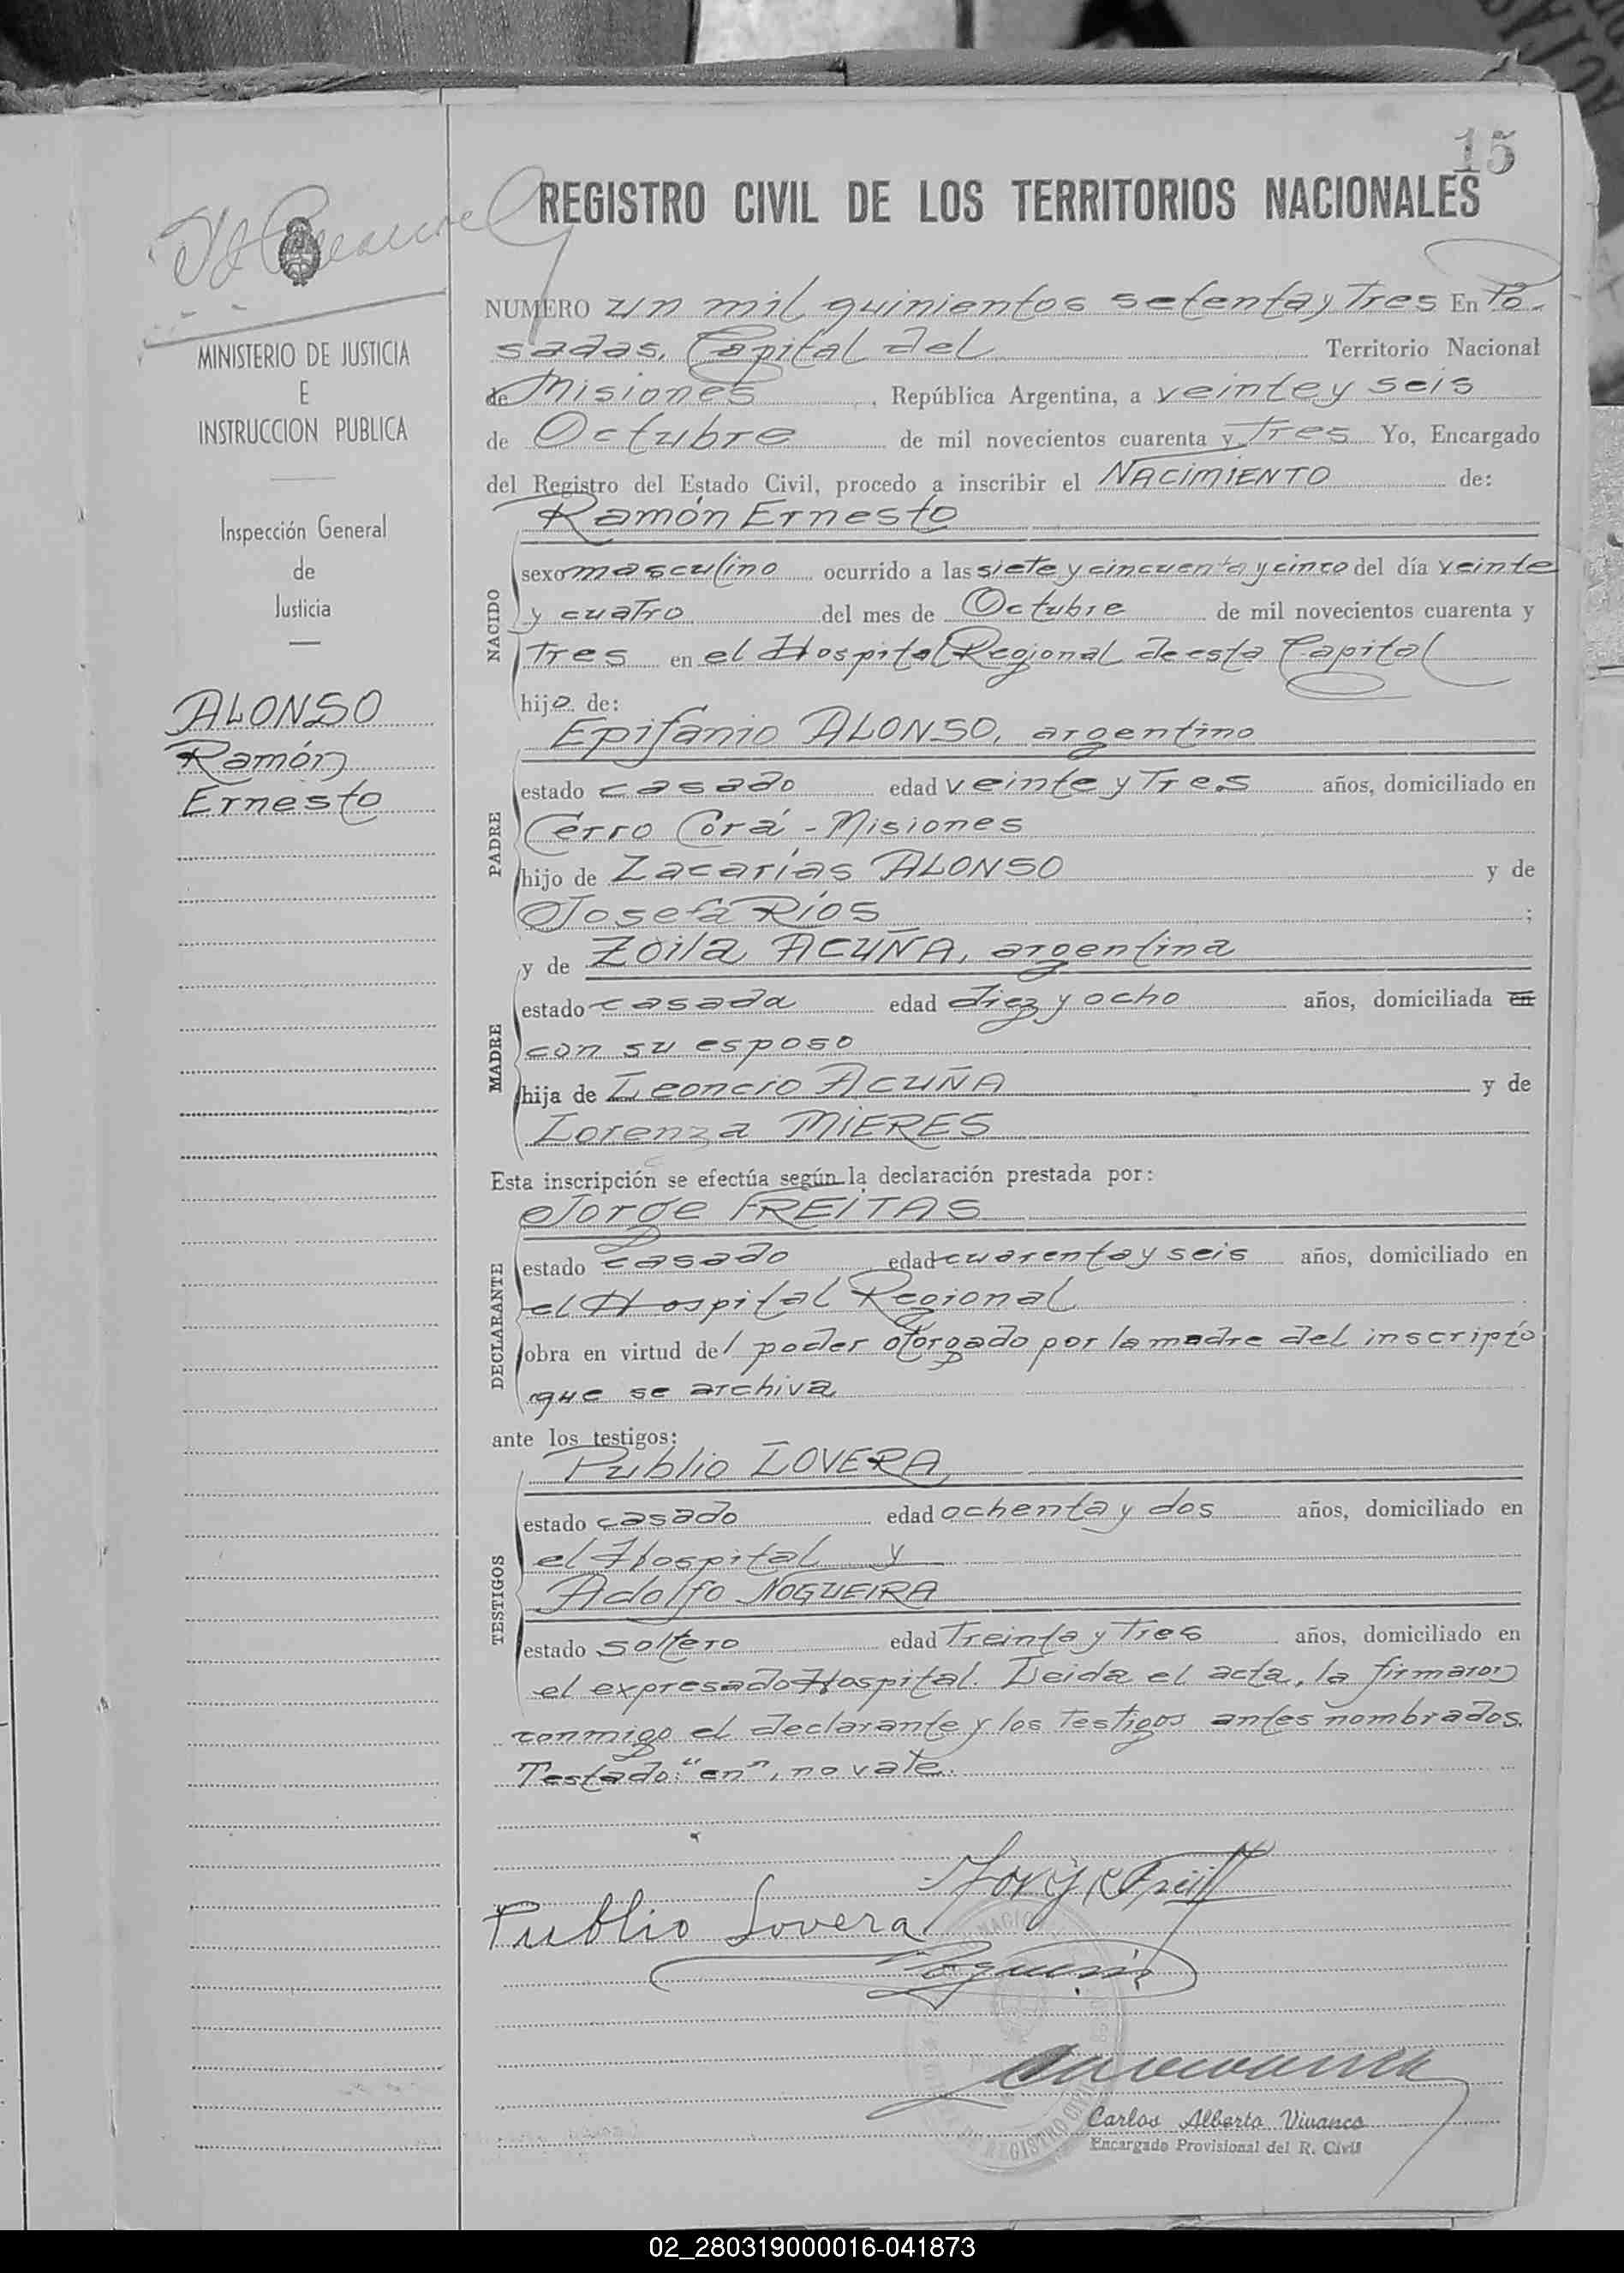 15
REGISTRO CIVIL DE LOS TERRITORIOS NACIONALES
MINISTERIO DE JUSTICIA
E
INSTRUCCION PUBLICA
Inspección General
de
Justicia
ALONSO
Ramón
Ernesto
NUMERO un mil quinientos setenta y Tres En Po-
sadas, Capital del Territorio Nacional
de Misiones, República Argentina, a veinte y seis
de Octubre de mil novecientos cuarenta y Tres Yo, Encargado
del Registro del Estado Civil, procedo a inscribir el NACIMIENTO de:
Ramón Ernesto
NACIDO
sexo masculino ocurrido a las siete y cincuenta y cinco del día veinte
y cuatro del mes de Octubre de mil novecientos cuarenta y
Tres en el Hospital Regional de esta Capital
hijo de:
Epifanio ALONSO, argentino
PADRE
estado casado edad veinte y Tres años, domiciliado en
Cerro Corá - Misiones
hijo de Zacarías ALONSO y de
Josefa Ríos ;
y de Zoila ACUÑA, argentina
MADRE
estado casada edad diez y ocho años, domiciliada en
con su esposo
hija de Leoncio ACUÑA y de
Lorenza MIERES
Esta inscripción se efectúa según la declaración prestada por:
Jorge FREITAS
DECLARANTE
estado casado edad cuarenta y seis años, domiciliado en
el Hospital Regional
obra en virtud del poder otorgado por la madre del inscripto
que se archiva
ante los testigos:
Publio LOVERA
TESTIGOS
estado casado edad ochenta y dos años, domiciliado en
el Hospital y
Adolfo NOGUEIRA
estado soltero edad Treinta y Tres años, domiciliado en
el expresado Hospital. Leida el acta, la firmaron
conmigo el declarante y los Testigos antes nombrados.
Testado: "en", no vale.
Publio Lovera
Carlos Alberto Vivanco
Encargado Provisional del R. Civil
02_280319000016-041873